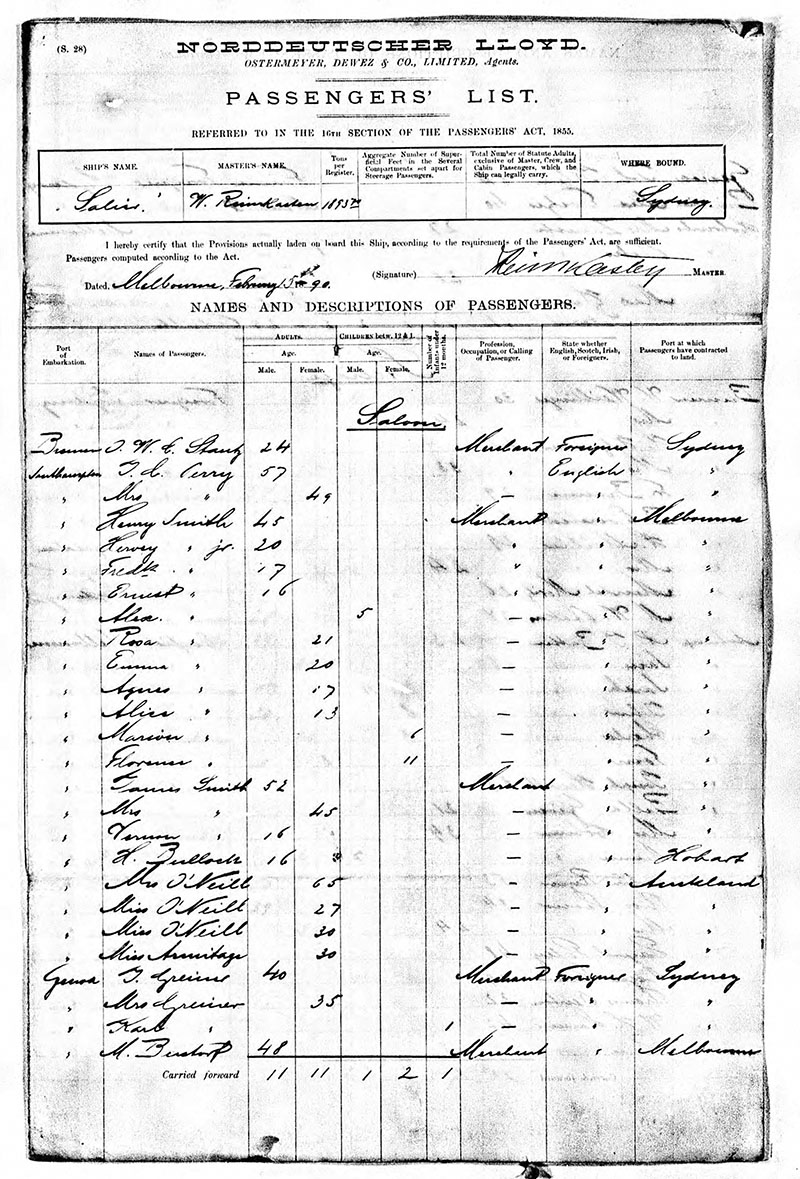 (S. 28)
NORDDEUTSCHER LLOYD.
OSTERMEYER, DEWEZ & CO., LIMITED, Agents.
PASSENGERS' LIST.
REFERRED TO IN THE 16TH SECTION OF THE PASSENGERS' ACT, 1855.
SHIP'S NAME. MASTER'S NAME. Tons per Register. Aggregate Number of Superficial Feet in the Several Compartments set apart for Steerage Passengers. Total Number of Statute Adults, exclusive of Master, Crew, and Cabin Passengers, which the Ship can legally carry. WHERE BOUND.
W. Sydney.
I hereby certify that the Provisions actually laden on board this Ship, according to the requirements of the Passengers' Act, are sufficient.
Passengers computed according to the Act.
(Signature) MASTER
Dated, Melbourne, February 15th 90.
NAMES AND DESCRIPTIONS OF PASSENGERS.
Port of Embarkation. Names of Passengers. ADULTS. Age. Male. Female. CHILDREN betw. 12 & 1. Age. Male. Female. Number of Infants under 12 months. Profession, Occupation, or Calling of Passenger. State whether English, Scotch, Irish, or Foreigners. Port at which Passengers have contracted to land.
Saloon
Bremen 24 Merchant Foreigner Sydney
Southampton 57 " English "
" Mrs " 49 — " "
" Henry Smith 45 Merchant " Melbourne
" Harvey " jr. 20 " " "
" Fredk " 17 " " "
" Ernest " 16 — " "
" Alex. " 5 — " "
" Rosa " 21 — " "
" Emma " 20 — " "
" Agnes " 17 — " "
" Alice " 13 — " "
" Marion " 6 — " "
" Florence " 11 — " "
" James Smith 52 Merchant " "
" Mrs " 45 — " "
" Vernon " 16 — " "
" H. Bullock 16 — " Hobart
" Mrs O'Neill 65 — " Auckland
" Miss O'Neill 27 — " "
" Miss O'Neill 30 — " "
" Miss Armitage 30 — " "
Genoa Greiner 40 Merchant Foreigner Sydney
" Mrs Greiner 35 — " "
" Karl " 1 — " "
" M. 48 Merchant " Melbourne
Carried forward 11 11 1 2 1